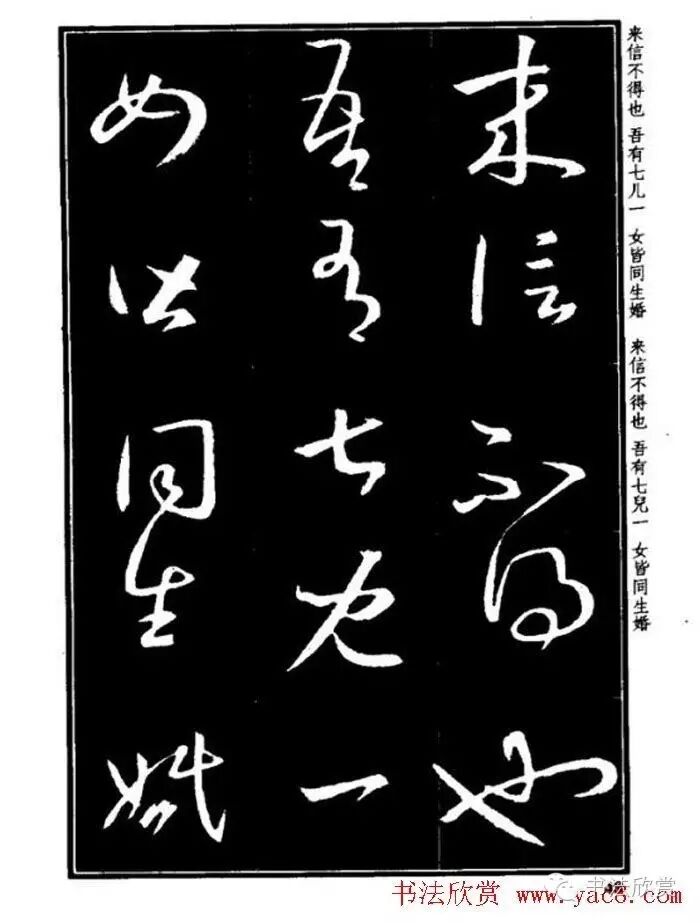 来信不得也
吾有七兒一
女皆同生婚
来信不得也 吾有七儿一 女皆同生婚
来信不得也 吾有七兒一 女皆同生婚
书法欣赏 www.yac8.com
书法欣赏